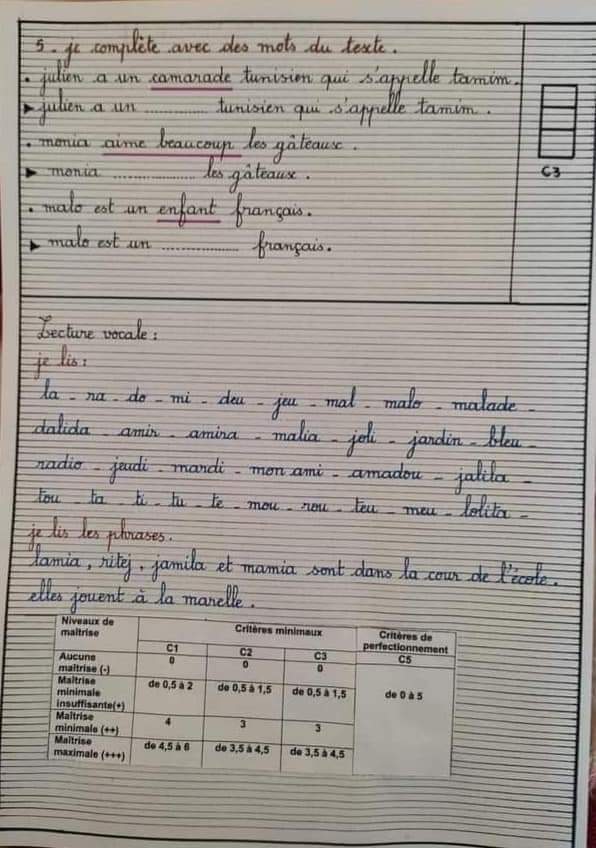 5. je complète avec des mots du texte.
. julien a un camarade tunisien qui s'appelle tamim.
► julien a un .............. tunisien qui s'appelle tamim.
. monia aime beaucoup les gâteaux.
C3
► monia .................. les gâteaux.
. malo est un enfant français.
► malo est un ................. français.
Lecture vocale :
je lis :
la - ra - do - mi - deu - jeu - mal - malo - malade -
dalida - amir - amira - malia - joli - jardin - bleu -
radio - jeudi - mardi - mon ami - amadou - jalila -
tou - ta - ti - tu - te - mou - rou - teu - meu - lolita -
je lis les phrases.
lamia, ritej, jamila et mamia sont dans la cour de l'école.
elles jouent à la marelle.
Niveaux de maîtrise Critères minimaux Critères de perfectionnement
C1 C2 C3 C5
Aucune maîtrise (-) 0 0 0
Maîtrise minimale insuffisante(+) de 0,5 à 2 de 0,5 à 1,5 de 0,5 à 1,5 de 0 à 5
Maîtrise minimale (++) 4 3 3
Maîtrise maximale (+++) de 4,5 à 6 de 3,5 à 4,5 de 3,5 à 4,5